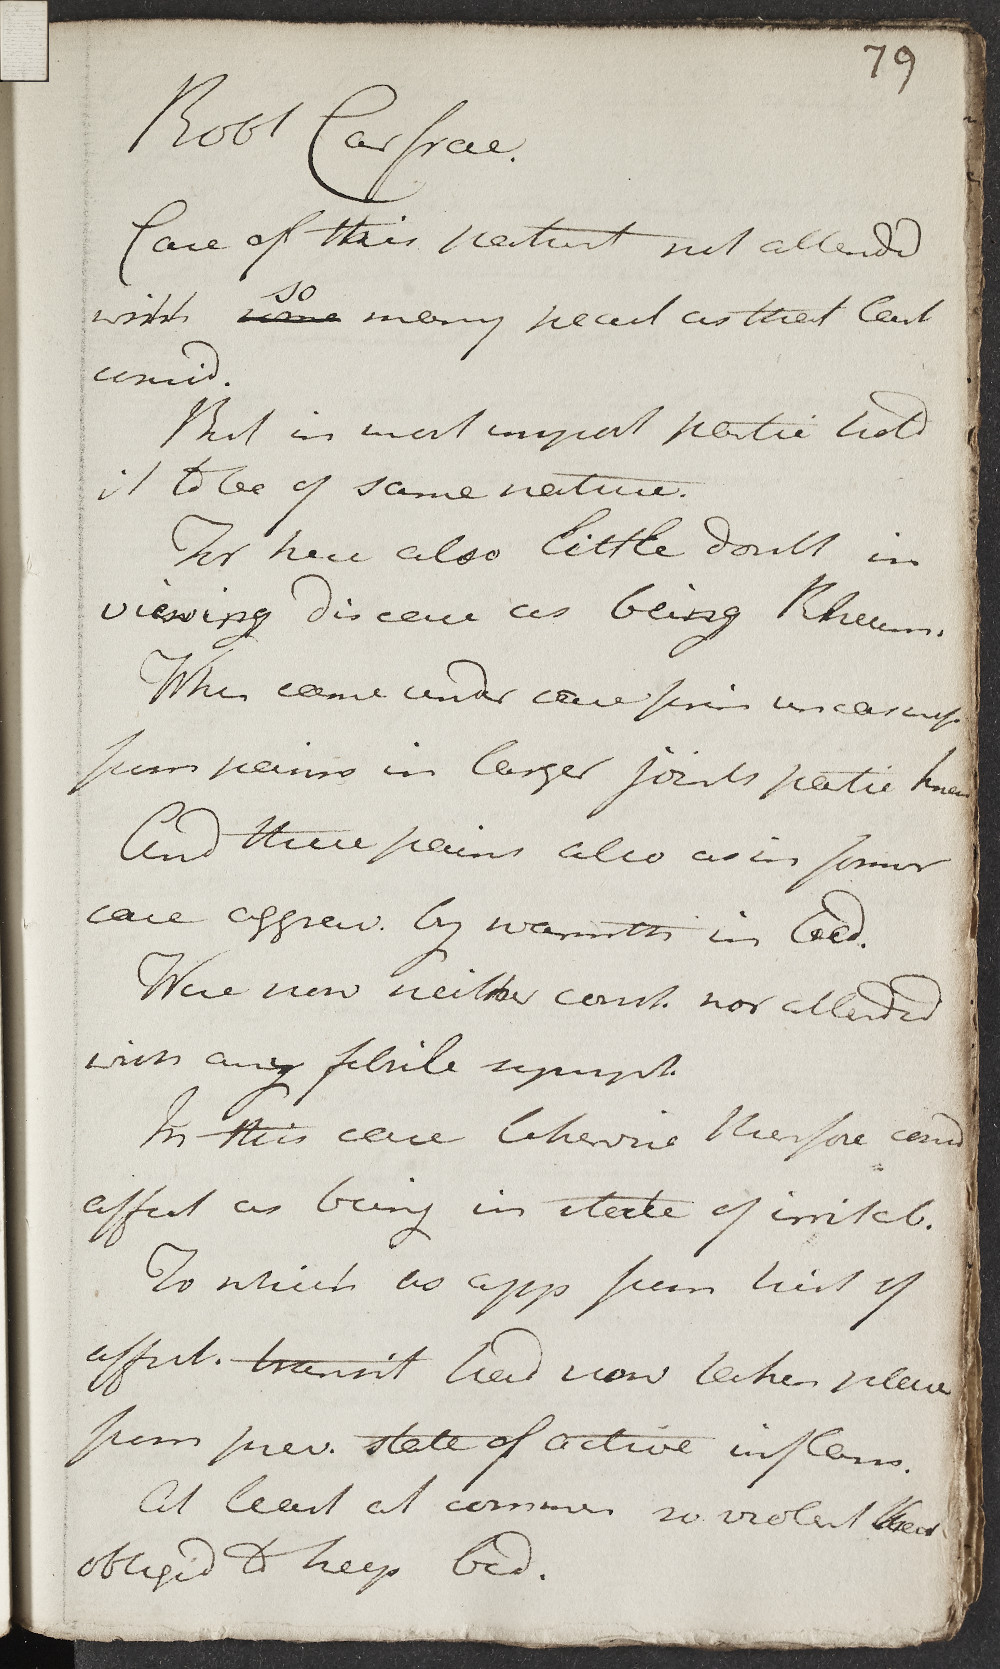 79
Robt Carfrae.
Case of this patient not attendd
with so some many pecul as that last
consid.
But in most import partic hold
it to be of same nature.
For here also little doubt in
viewing disease as being Rheum.
When came under care princ uneasiness
from pains in larger joints partic knees
And these pains also as in former
case aggrav. by warmth in bed.
Were now neither const. nor attended
with any febrile sympt.
In this case likewise therefore consid
affect as being in state of irritab.
To which as app from hist of
affect. transit had now taken place
from prev. state of active inflam.
At least at commen so violent that
obligd to keep bed.